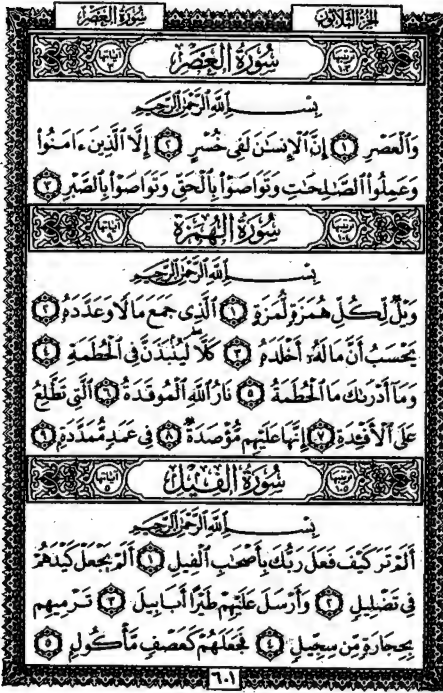 سُورَةُ العَصْرِ الجُزْءُ الثَّلَاثُونَ
ترتيبها ١٠٣ سُورَةُ العَصْرِ آياتها ٣
بِسْمِ اللَّهِ الرَّحْمَٰنِ الرَّحِيمِ
وَالْعَصْرِ ١ إِنَّ الْإِنسَٰنَ لَفِى خُسْرٍ ٢ إِلَّا الَّذِينَ ءَامَنُوا۟
وَعَمِلُوا۟ الصَّٰلِحَٰتِ وَتَوَاصَوْا۟ بِالْحَقِّ وَتَوَاصَوْا۟ بِالصَّبْرِ ٣
ترتيبها ١٠٤ سُورَةُ الهُمَزَةِ آياتها ٩
بِسْمِ اللَّهِ الرَّحْمَٰنِ الرَّحِيمِ
وَيْلٌ لِّكُلِّ هُمَزَةٍ لُّمَزَةٍ ١ الَّذِى جَمَعَ مَالًا وَعَدَّدَهُۥ ٢
يَحْسَبُ أَنَّ مَالَهُۥٓ أَخْلَدَهُۥ ٣ كَلَّا ۖ لَيُنۢبَذَنَّ فِى الْحُطَمَةِ ٤
وَمَآ أَدْرَىٰكَ مَا الْحُطَمَةُ ٥ نَارُ اللَّهِ الْمُوقَدَةُ ٦ الَّتِى تَطَّلِعُ
عَلَى الْأَفْـِٔدَةِ ٧ إِنَّهَا عَلَيْهِم مُّؤْصَدَةٌ ٨ فِى عَمَدٍ مُّمَدَّدَةٍۭ ٩
ترتيبها ١٠٥ سُورَةُ الفِيلِ آياتها ٥
بِسْمِ اللَّهِ الرَّحْمَٰنِ الرَّحِيمِ
أَلَمْ تَرَ كَيْفَ فَعَلَ رَبُّكَ بِأَصْحَٰبِ الْفِيلِ ١ أَلَمْ يَجْعَلْ كَيْدَهُمْ
فِى تَضْلِيلٍ ٢ وَأَرْسَلَ عَلَيْهِمْ طَيْرًا أَبَابِيلَ ٣ تَرْمِيهِم
بِحِجَارَةٍ مِّن سِجِّيلٍ ٤ فَجَعَلَهُمْ كَعَصْفٍ مَّأْكُولٍۭ ٥
٦٠١